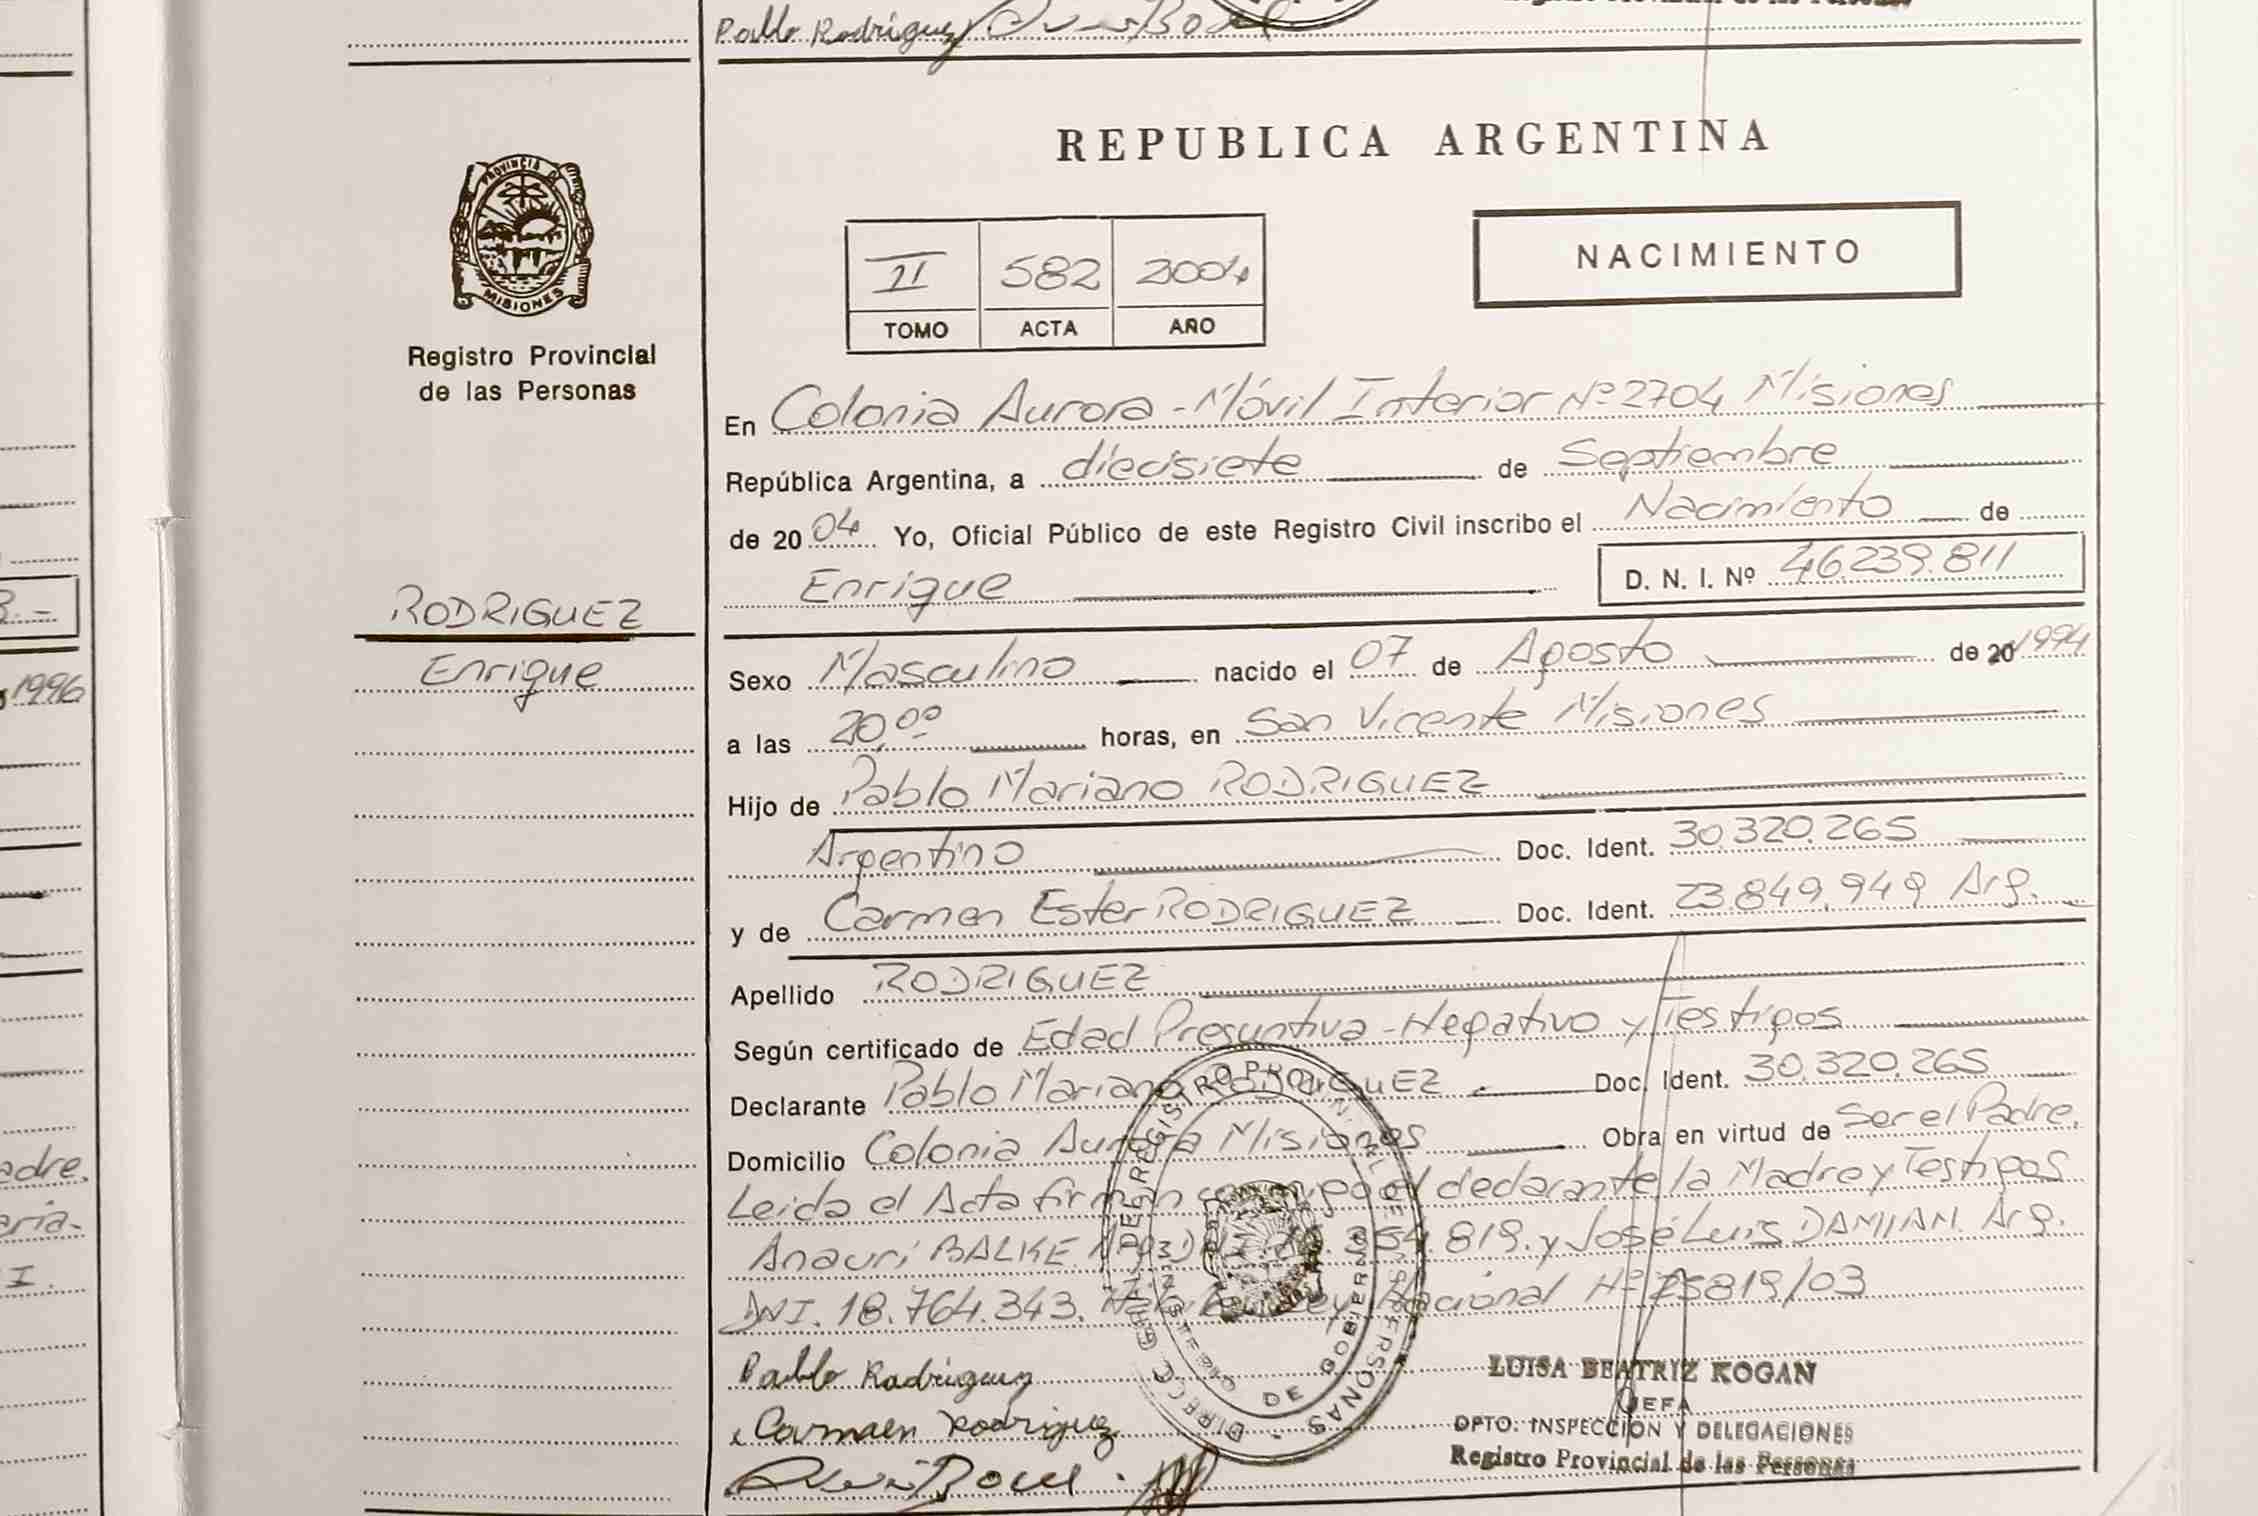 Pablo Rodriguez
REPUBLICA ARGENTINA
PROVINCIA DE
MISIONES
Registro Provincial
de las Personas
II 582 2004
TOMO ACTA AÑO
NACIMIENTO
En Colonia Aurora - Móvil Interior Nº 2704 Misiones
República Argentina, a diecisiete de Septiembre
de 2004 Yo, Oficial Público de este Registro Civil inscribo el Nacimiento de
Enrique D. N. I. Nº 46.239.811
RODRIGUEZ
Enrique
Sexo Masculino nacido el 07 de Agosto de 20 1994
a las 20,00 horas, en San Vicente Misiones
Hijo de Pablo Mariano RODRIGUEZ
Argentino Doc. Ident. 30.320.265
y de Carmen Ester RODRIGUEZ Doc. Ident. 23.849.949 Arg.
Apellido RODRIGUEZ
Según certificado de Edad Presuntiva - Negativo y Testigos
Declarante Pablo Mariano RODRIGUEZ Doc. Ident. 30.320.265
Domicilio Colonia Aurora Misiones Obra en virtud de Ser el Padre.
Leida el Acta firman conmigo el declarante la Madre y Testigos
Anauri BALKE 354.819. y José Luis DAMIAN. Arg.
DNI. 18.764.343. Ley Nacional Nº 25819/03
Pablo Rodriguez
Carmen Rodriguez
DIREC DEL REGISTRO PROVINCIAL DE LAS PERSONAS
MINISTERIO DE GOBIERNO
LUISA BEATRIZ KOGAN
JEFA
DPTO. INSPECCION Y DELEGACIONES
Registro Provincial de las Personas
1996